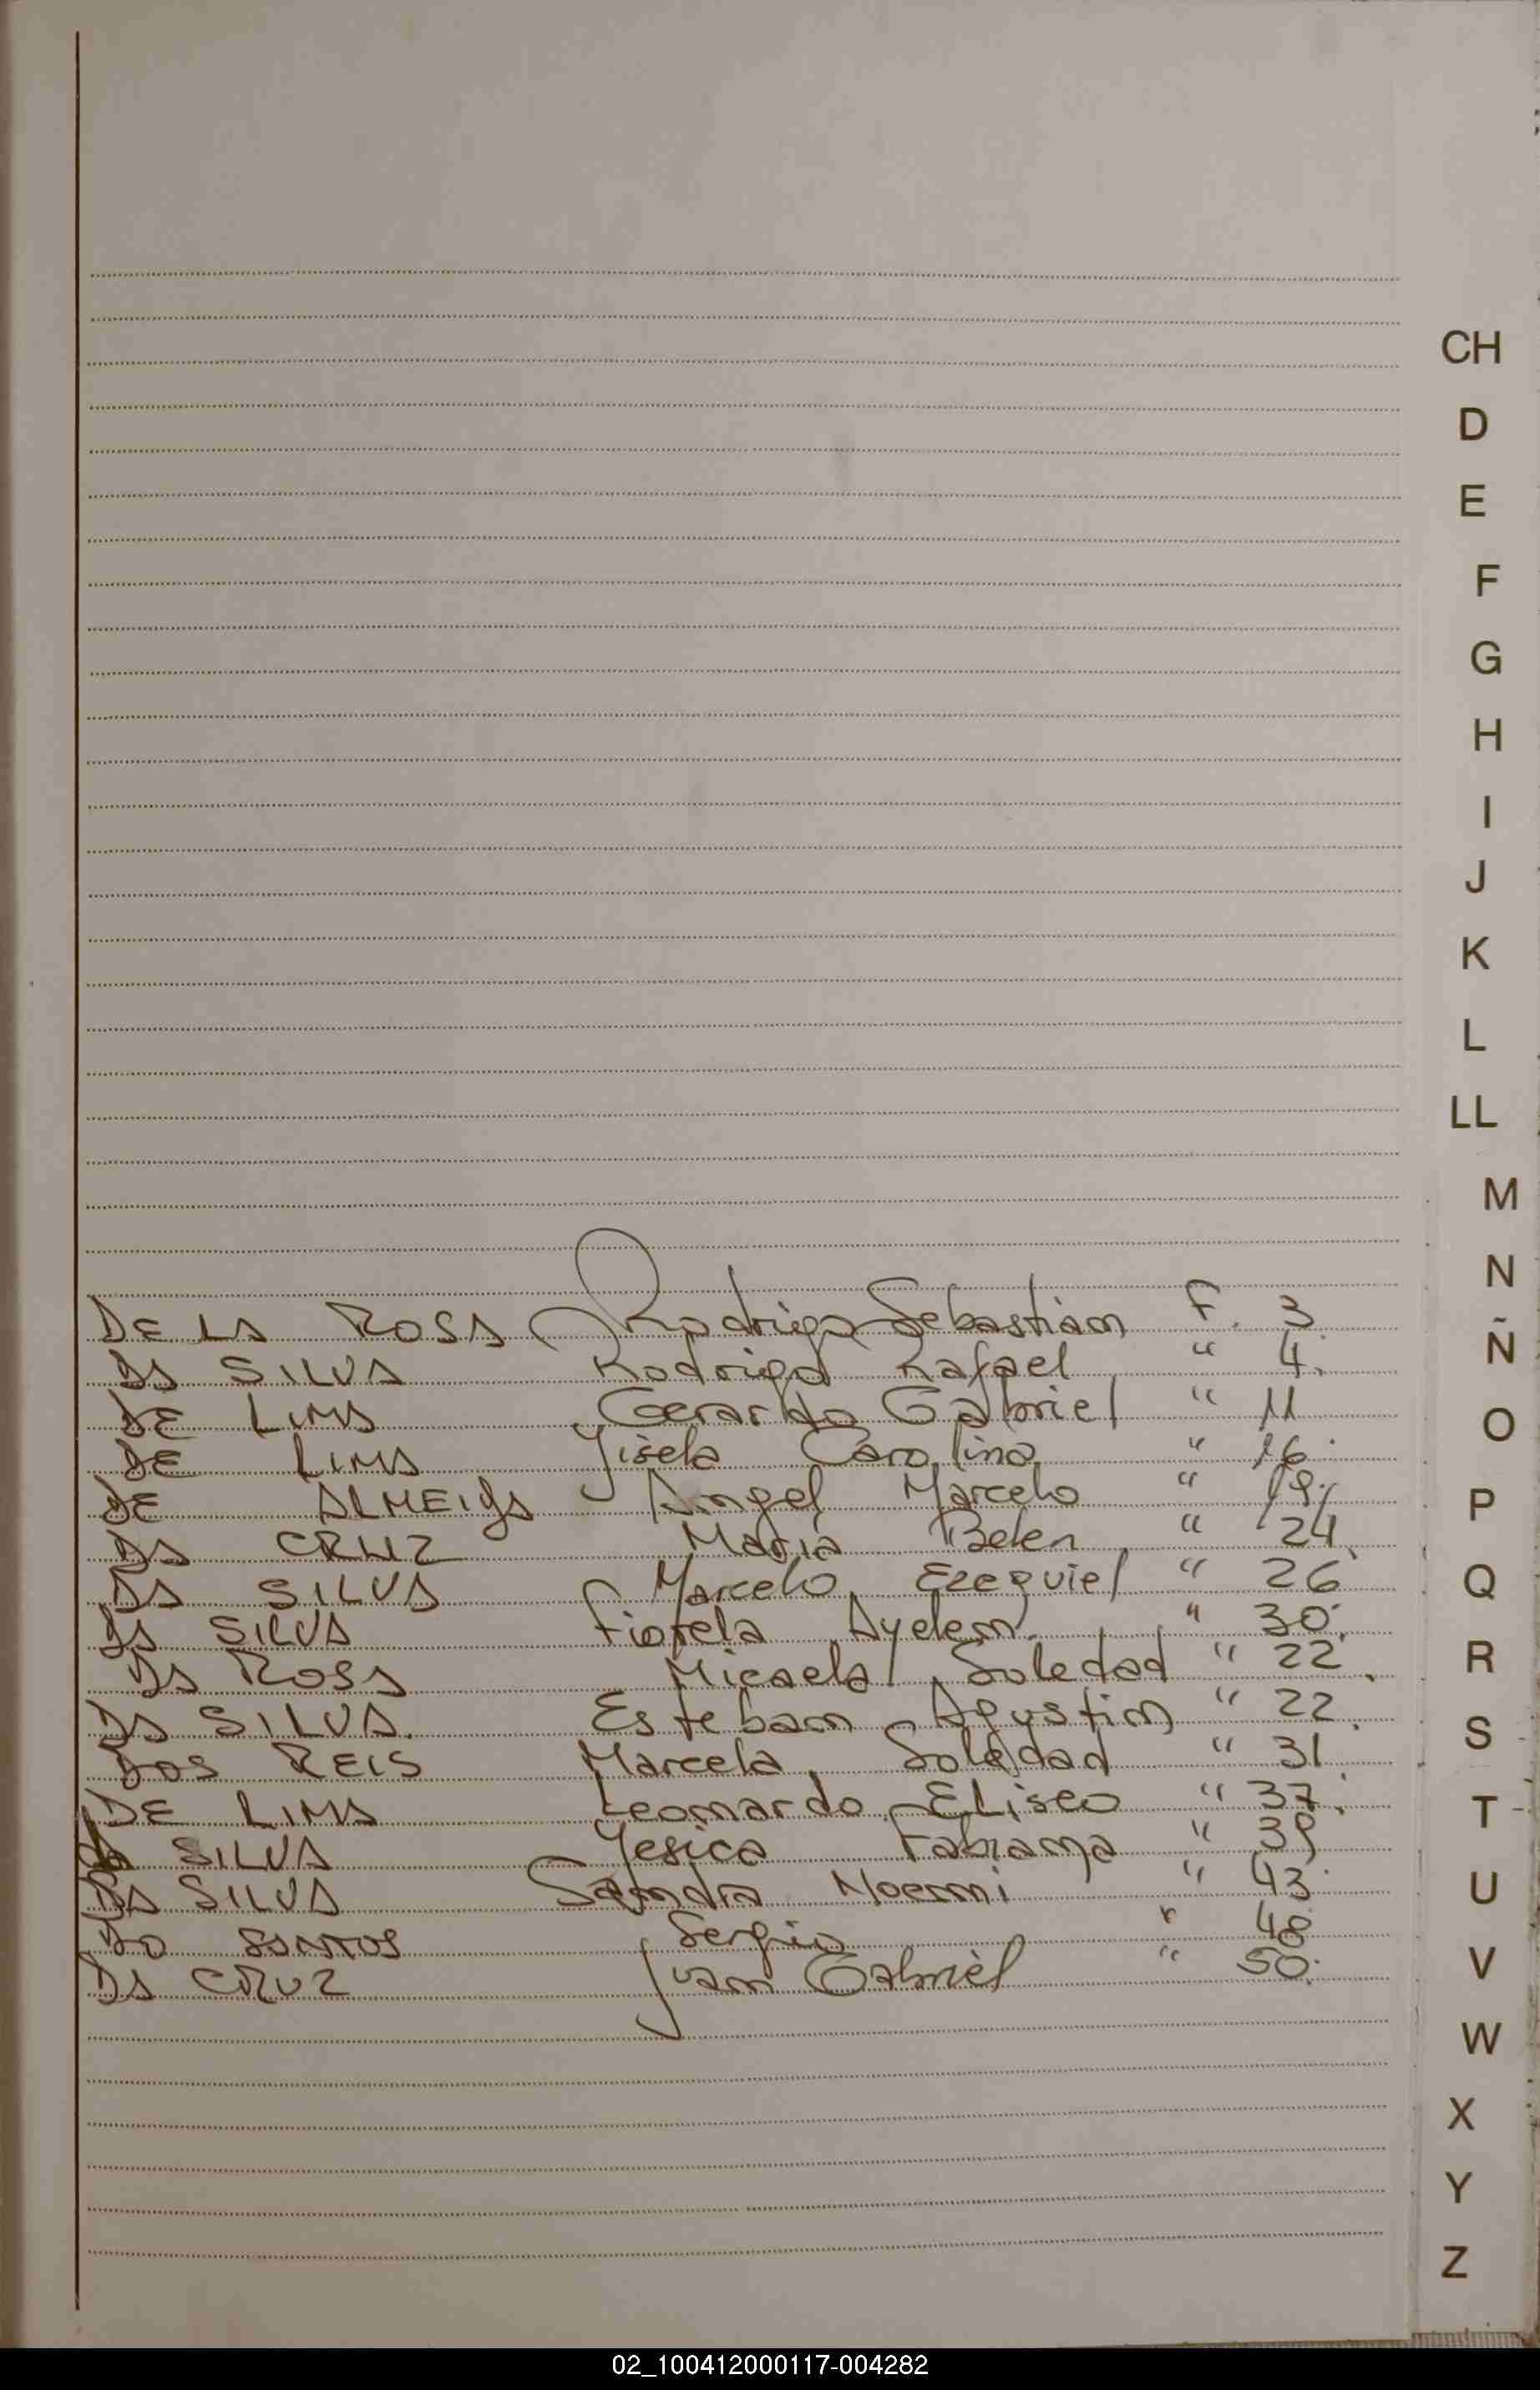 CH
D
E
F
G
H
I
J
K
L
LL
M
N
Ñ
O
P
Q
R
S
T
U
V
W
X
Y
Z
DE LA ROSA Rodrigo Sebastián F. 3
DA SILVA Rodrigo Rafael " 4.
DE LIMA Gerardo Gabriel " 11
DE LIMA Yisela Carolina " 16.
DE ALMEIDA Angel Marcelo " 19.
DA CRUZ Maria Belen " 24
DA SILVA Marcelo Ezequiel " 26
DA SILVA Fiorela Ayelen " 30.
DA ROSA Micaela Soledad " 22.
DA SILVA. Esteban Agustin " 22.
DOS REIS Marcela Soledad " 31
DE LIMA Leonardo Eliseo " 37.
da SILVA Yesica Fabiana " 39
DA SILVA Sandra Noemi " 43.
DO SANTOS Sergio " 48
DA CRUZ Juan Gabriel " 50.
02_100412000117-004282